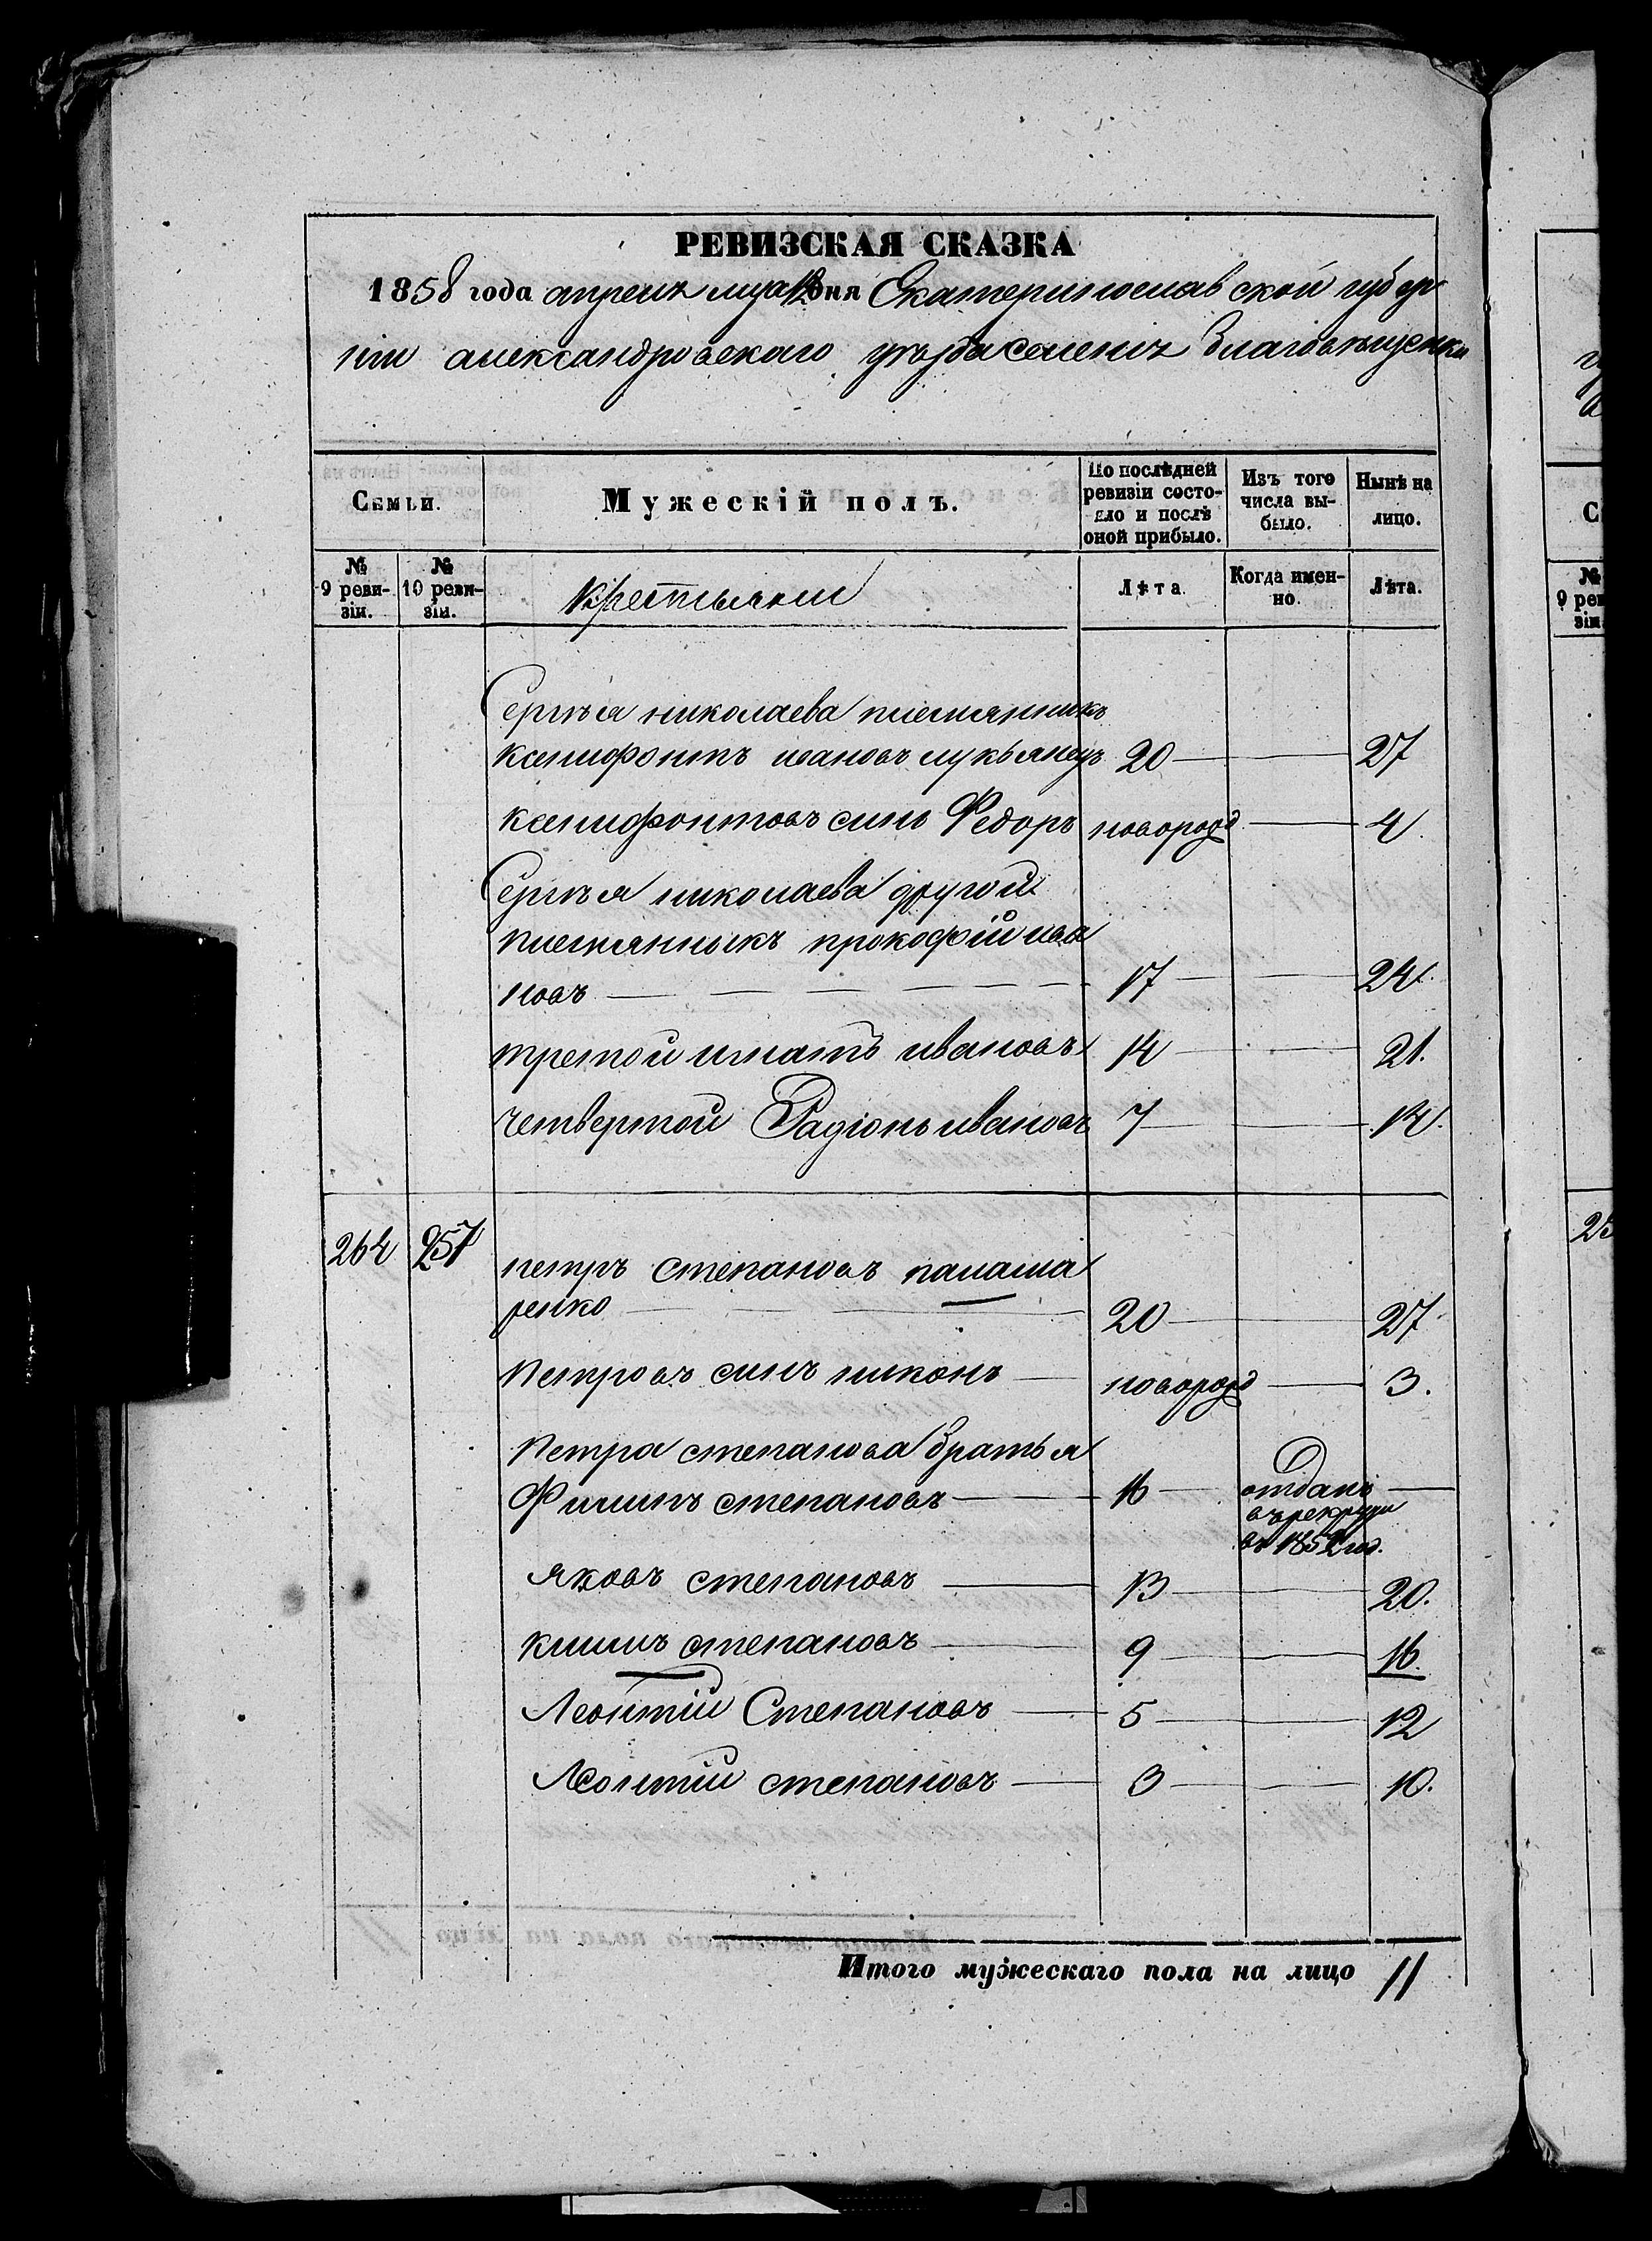 РЕВИЗСКАЯ СКАЗКА
1858 года апреля мца дня Екатеринославской губер
ніи александровскаго уъзда селенія Благовъщенки
Семьи.
Мужескій полъ.
По послѣдней ревизіи состо-
яло и послѣ
оной прибыло.
Изъ того
числа вы-
было.
Нынѣ на
лицо.
№
9 реви-
зіи.
№
10 реви-
зіи.
Крестьяни
Лѣта.
Когда имен-
но.
Лѣта.
Сергъя николаева племянникъ
ксенифонтъ ивановъ лукъянецъ 20 27
ксенифонтовъ синъ Федоръ новорожд 4.
Сергъя николаева другой
племянникъ прокофій ива
новъ 17 24.
третой игнатъ ивановъ 14 21.
четвертой Радіонъ ивановъ 7 14.
264 257 петръ степановъ паламა
ренко 20 27
Петровъ синъ никонъ новорожд 3.
Петра степанова братья
Филипъ степановъ 16 отданъ
въ рекруты
въ 1852 год.
яковъ степановъ 13 20.
климъ степановъ 9 16.
Леонтій Степановъ 5 12
Леонтій степановъ 3 10.
Итого мужескаго пола на лицо 11
С
№
9 рев
зіи
25